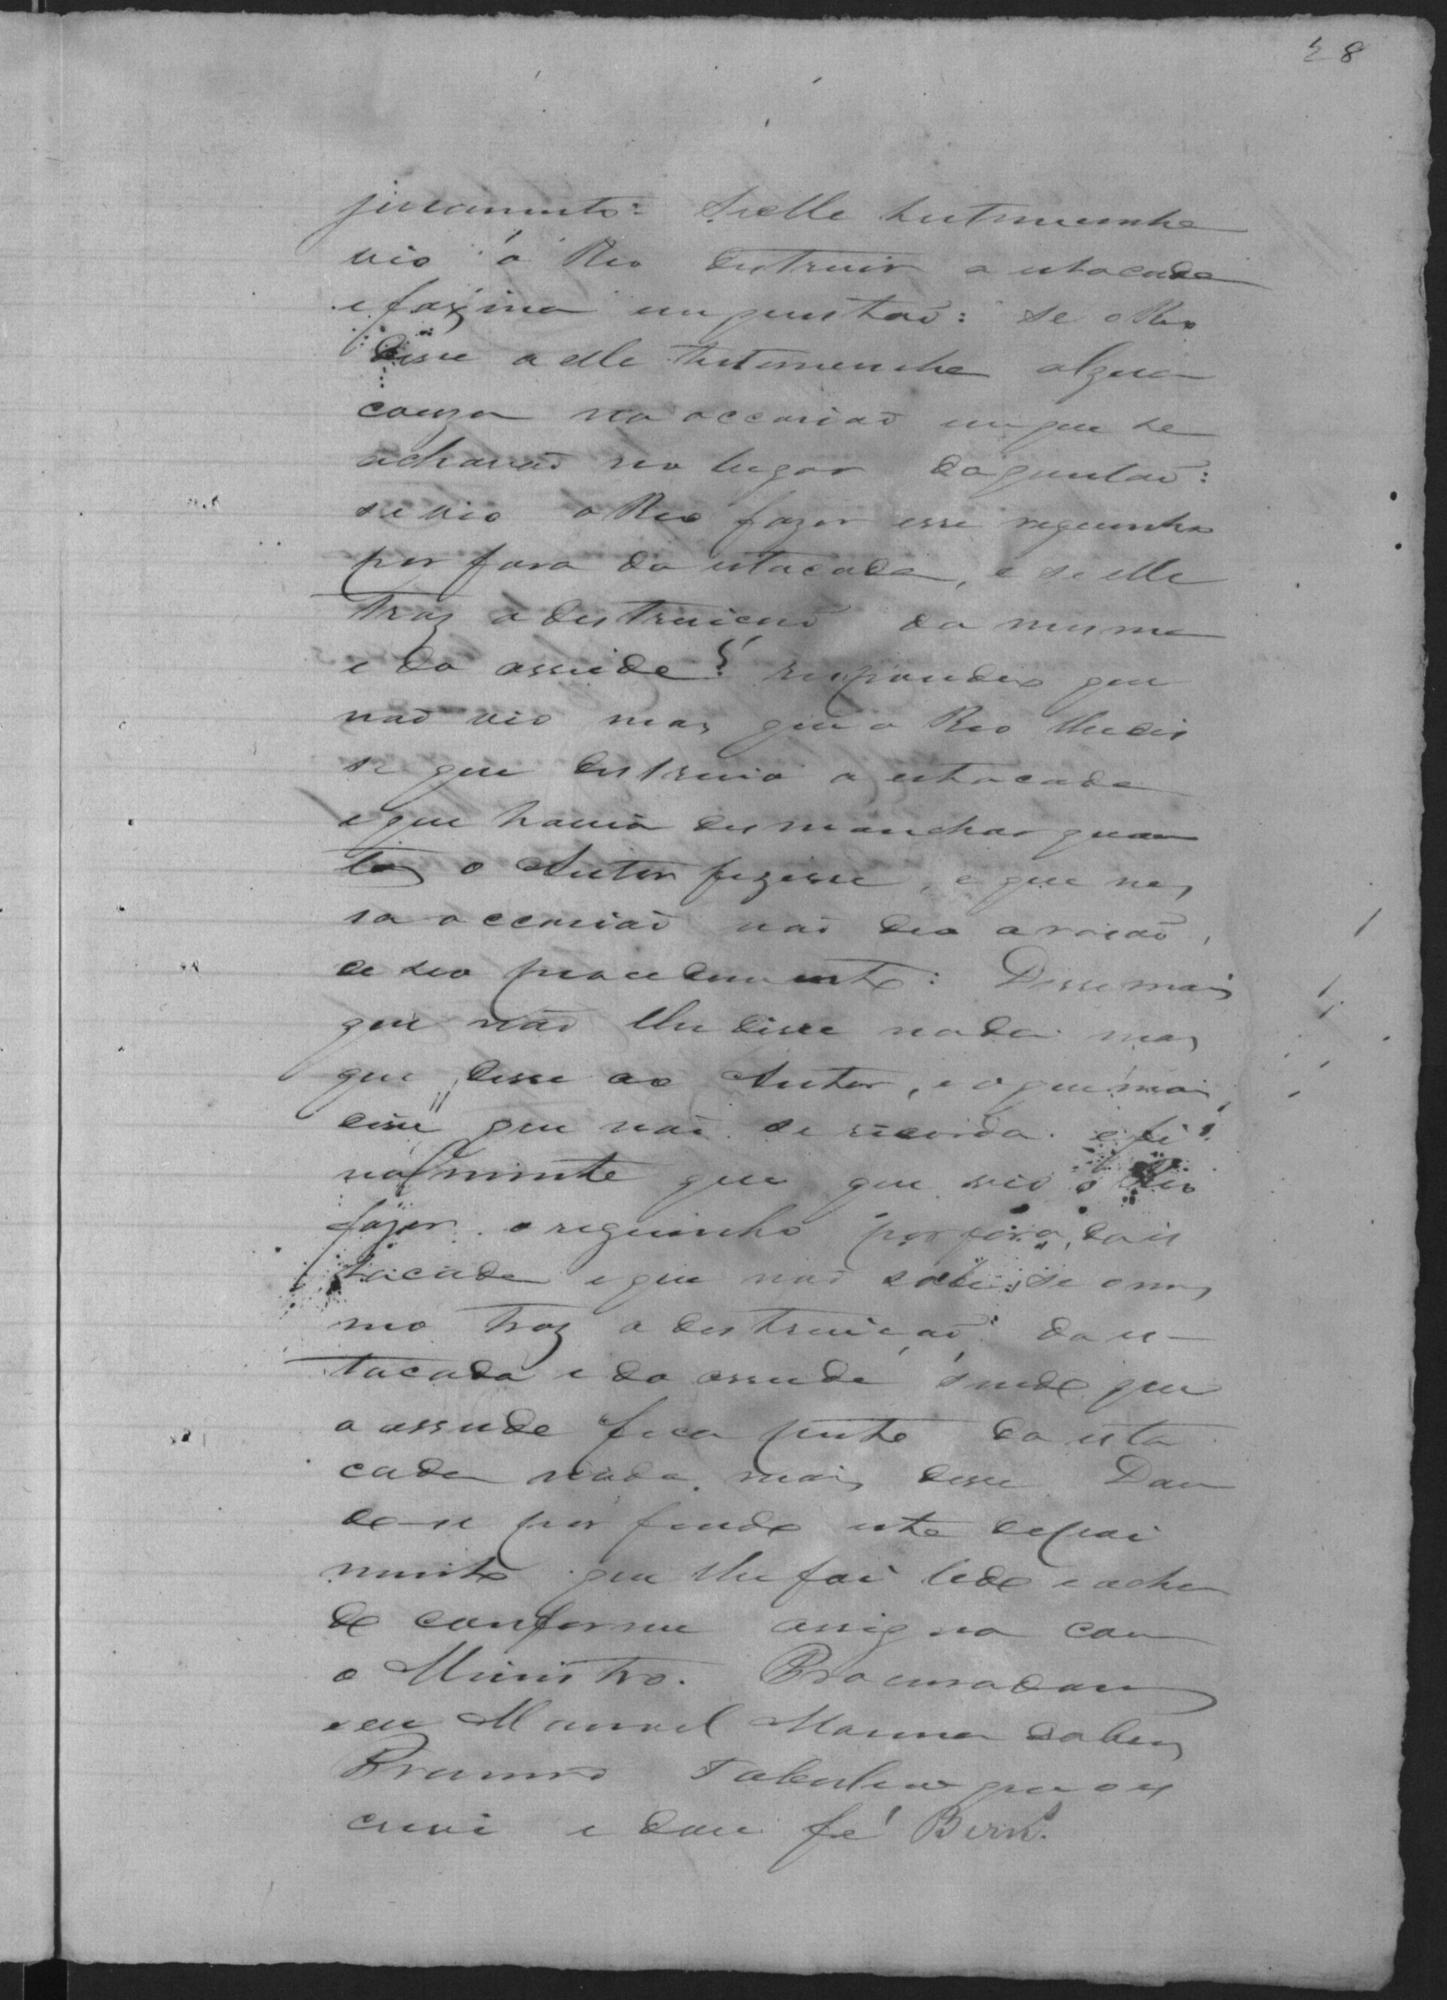 28
juramento: Se elle testemunha
vio o Reo destruir a estacada
e faxina em questaõ: se o Reo
disse a elle testemunha alguã
couza na occasiaõ em que se
achavaõ no lugar da questaõ:
se vio o Reo fazer esse reguinho
por fora da estacada, e se elle
traz a destruicaõ da mesma
e do assude? respondeo que
naõ vio mas que o Reo lhe dis
se que destruio a estacada
e que havia desmanchar quan
tos o Autor fizesse, e que nes
sa occasiaõ naõ deo a rasaõ
de seo procedimento: Disse mais
que naõ lhe disse nada mas
que disse ao Autor, e o que mais
disse que naõ se recorda. e fi
nalmente que que vio o Reo
fazer o reguinho por fora da es
tacada e que naõ sabe se o mes
mo traz a destruicaõ da es-
tacada e do assude, sendo que
o assude fica perto da esta
cada nada mais disse. Dan
do-se por findo este depoi
mento que lhe foi lido e achan
do conforme assigna com
o Ministro. Procuradores
e eu Manoel Tabeliaõ que o es
crevi e dou fé